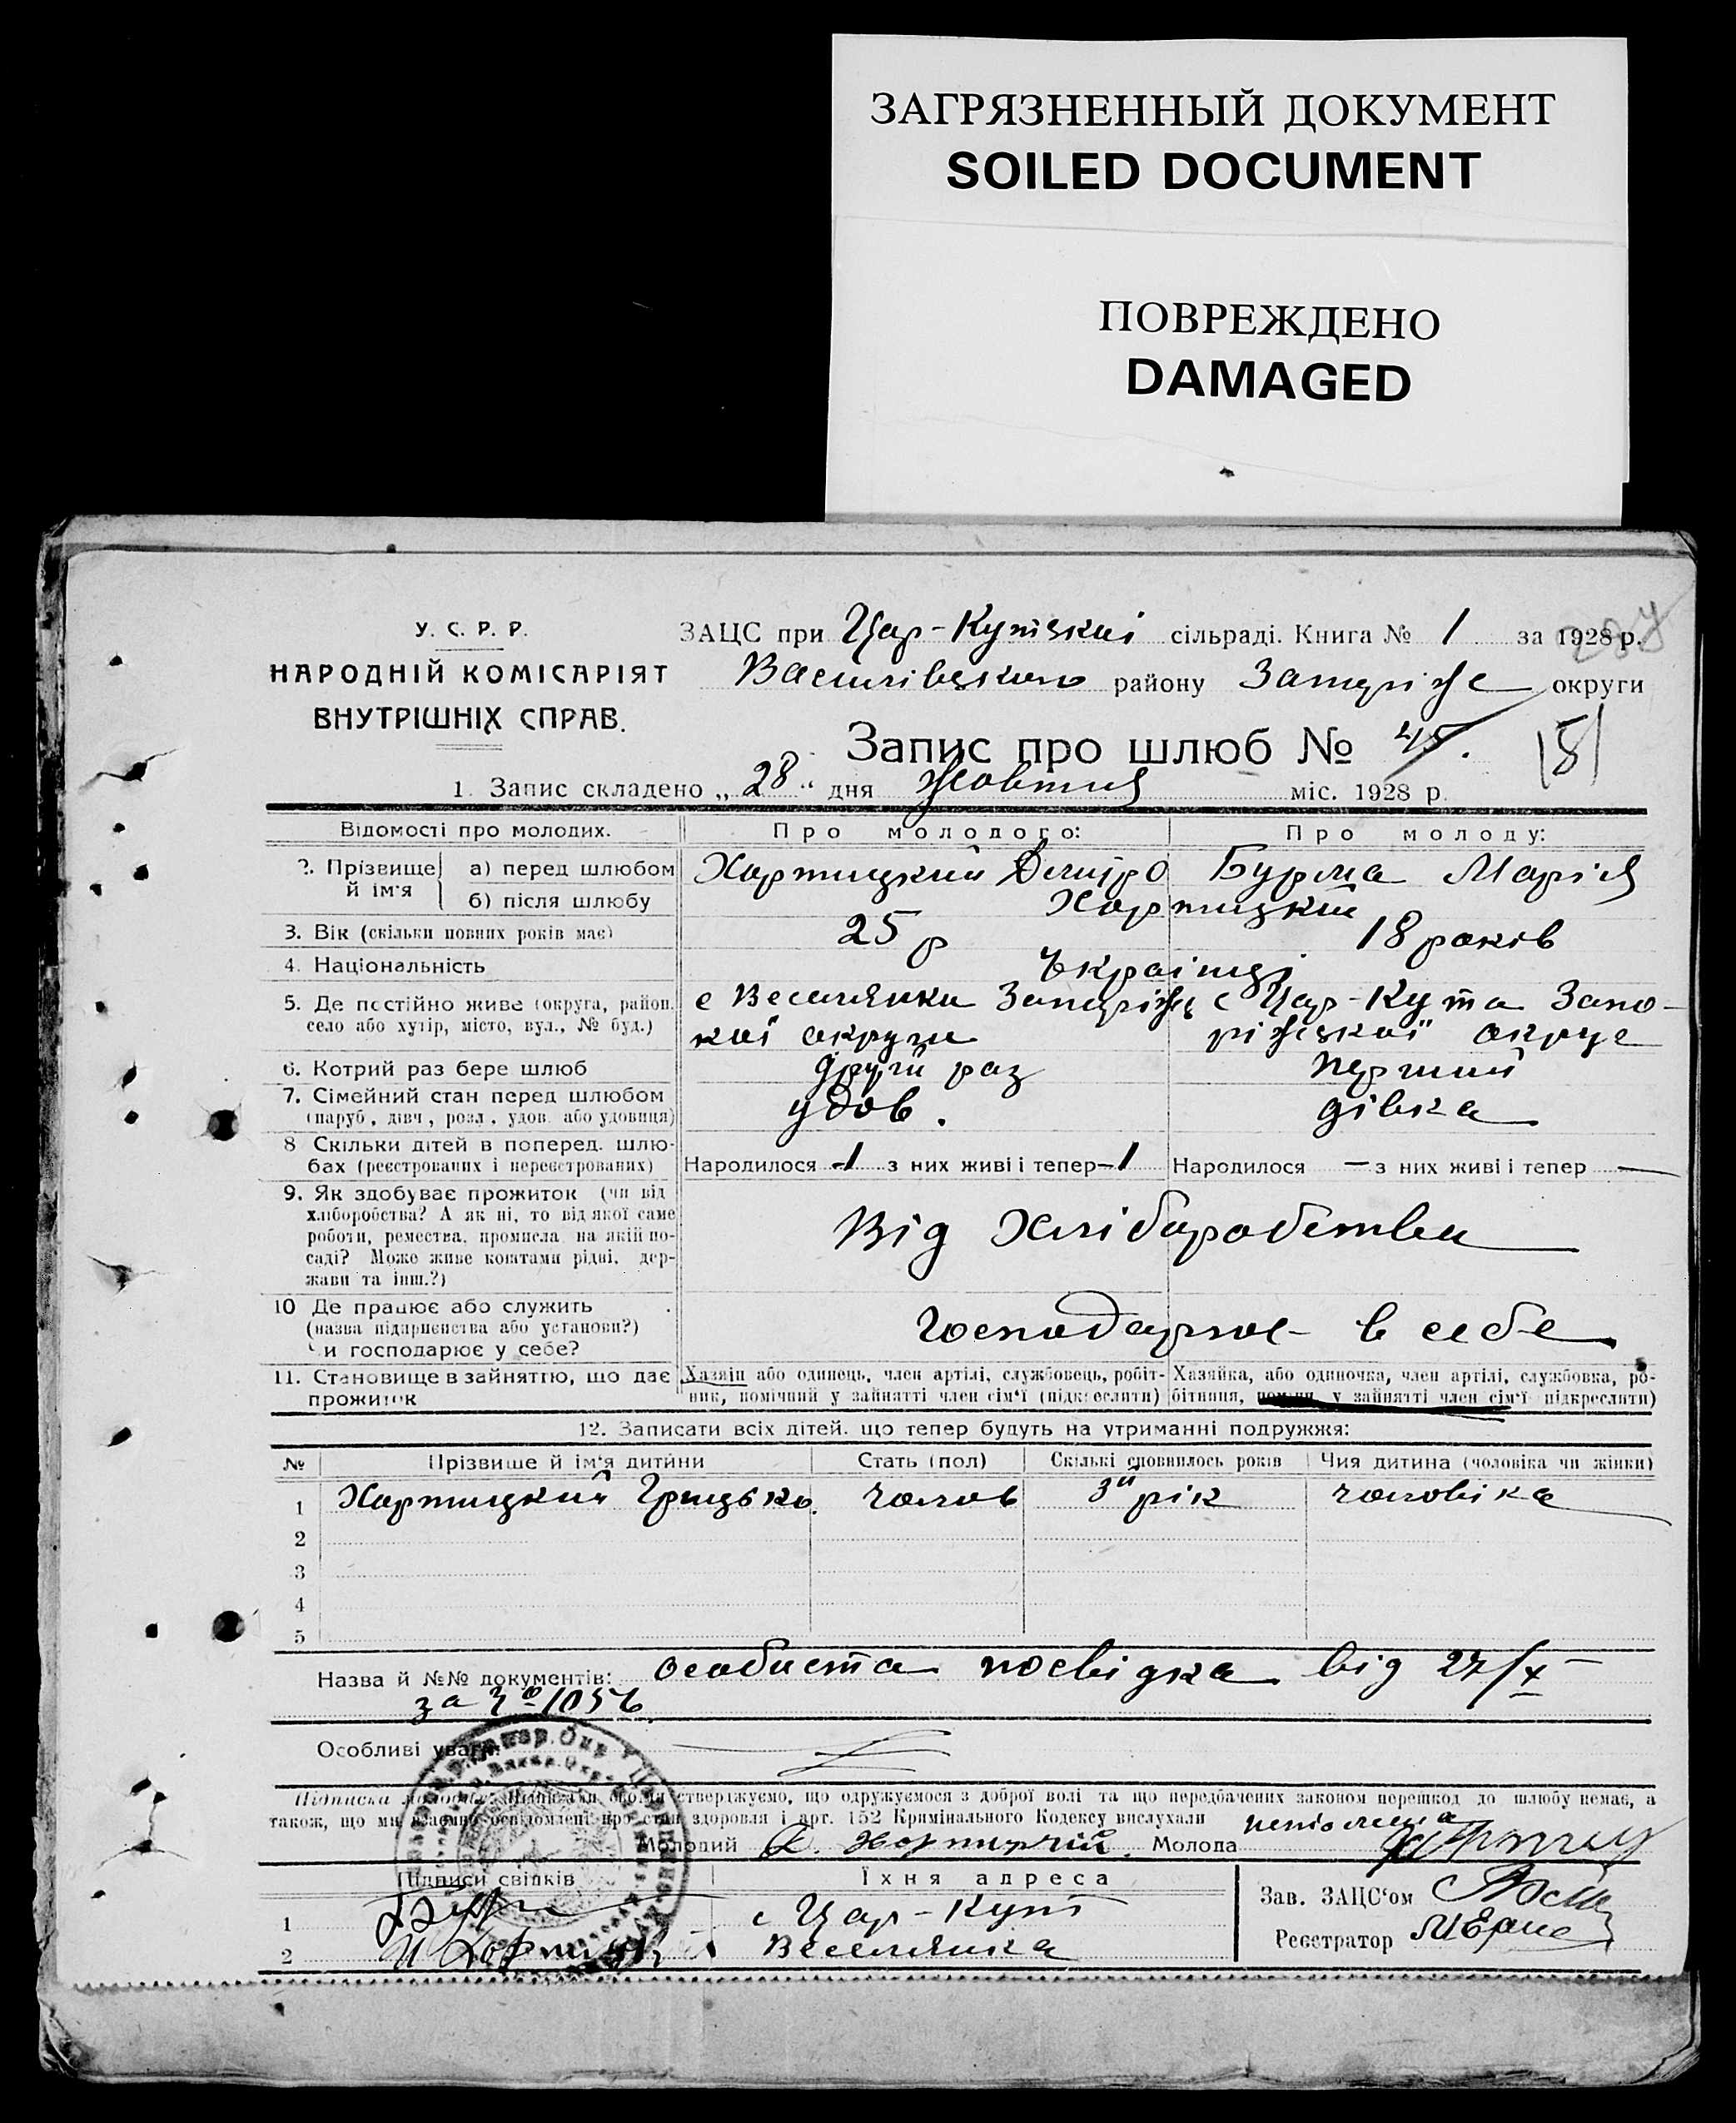 ЗАГРЯЗНЕННЫЙ ДОКУМЕНТ
SOILED DOCUMENT
ПОВРЕЖДЕНО
DAMAGED
У. С. Р. Р.
НАРОДНІЙ КОМІСАРІЯТ
ВНУТРІШНІХ СПРАВ.
ЗАЦС при Цар-Кутській сільраді. Книга № 1 за 1928 р.
Василівського району Запоріже округи
Запис про шлюб № 45. 181
1. Запис складено „ 28 “ дня Жовтня міс. 1928 р.
Відомості про молодих. Про молодого: Про молоду:
2. Прізвище й ім'я
а) перед шлюбом Хортицкий Дмитро Бурма Марія
б) після шлюбу Хортицкий
3. Вік (скільки повних років має) 25 р 18 років
4. Національність Українці
5. Де постійно живе (округа, район, село або хутір, місто, вул., № буд.)
с Веселянка Запоріжс с Цар-Кута Запо-
кої округи ріжської округе
6. Котрий раз бере шлюб другий раз перший
7. Сімейний стан перед шлюбом удов. дівка
(паруб., дівч., розл., удов. або удовиця)
8 Скільки дітей в поперед. шлюбах (реєстрованих і нереєстрованих)
Народилося -1 з них живі і тепер -1 Народилося — з них живі і тепер —
9. Як здобуває прожиток (чи від
хліборобства? А як ні, то від якої саме
роботи, ремества, промисла на якій по-
саді? Може живе коштами рідні, дер-
жави та інш.?)
Від Хліборобства
10 Де працює або служить
(назва підприємства або установи?)
Чи господарює у себе?
господарює в себе
11. Становище в зайняттю, що дає
прожиток
Хазяїн або одинець, член артілі, службовець, робіт-
ник, помічний у зайнятті член сім'ї (підкреслити)
Хазяйка, або одиночка, член артілі, службовка, ро-
бітниця, у зайнятті член сім'ї підкреслити)
12. Записати всіх дітей, що тепер будуть на утриманні подружжя:
№ Прізвище й ім'я дитини Стать (пол) Скількі сповнилось років Чия дитина (чоловіка чи жінки)
1 Хортицкий Грицько. чолов 3й рік чоловіка
2
3
4
5
Назва й №№ документів: особиста посвідка від 27/X
за № 1056
Особливі уваги:
Підписка молодих: стверджуємо, що одружуємося з доброї волі та що передбачених законом перешкод до шлюбу немає, а
також, що ми взаємно освідомлені про стан здоровля і арт. 152 Кримінального Кодексу вислухали
Молодий Д. Хортицкий. Молода
Підписи свідків Їхня адреса
1 с Цар-Кут
2 Веселянка
Зав. ЗАЦС'ом
Реєстратор